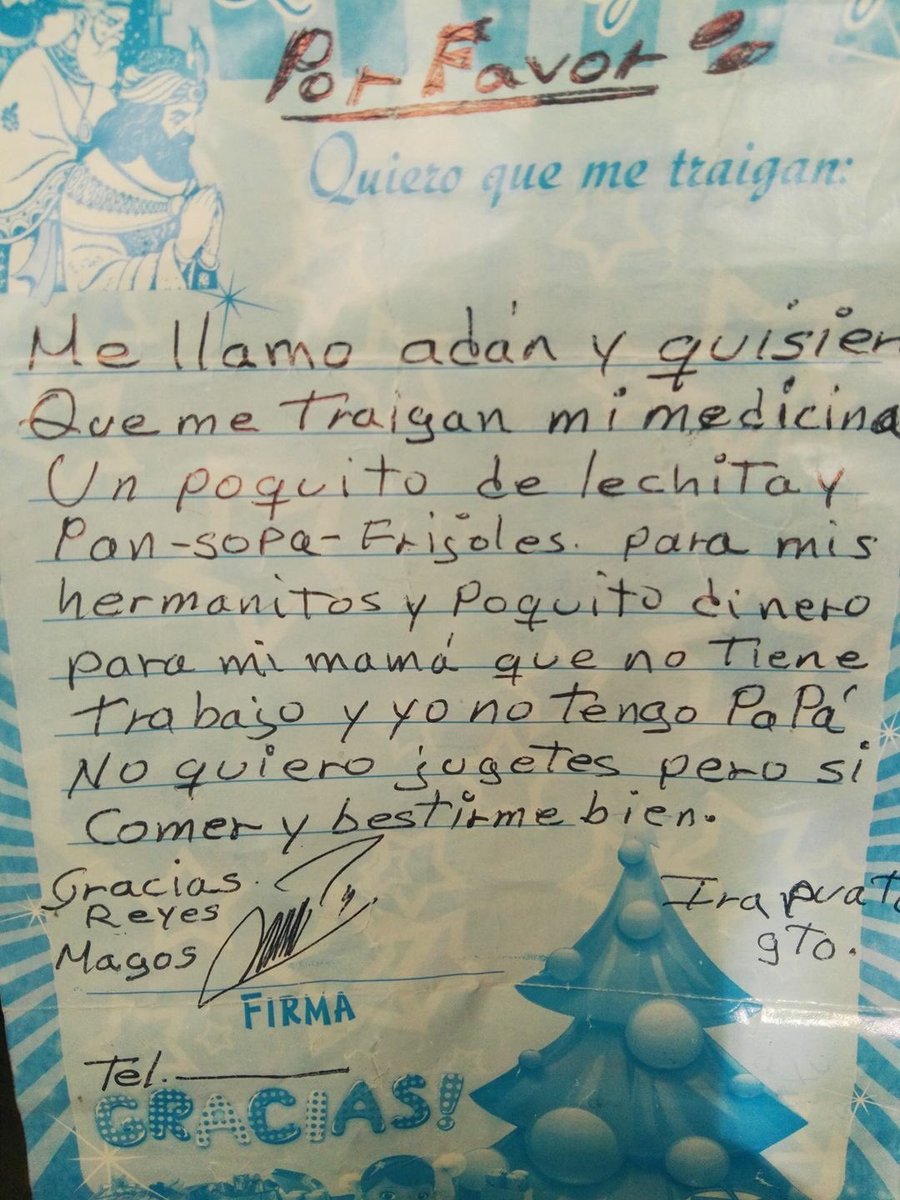 Por Favor
Quiero que me traigan:
Me llamo adán y quisier
Que me Traigan mi medicina
Un poquito de lechita y
Pan-sopa-Frijoles. para mis
hermanitos y Poquito dinero
para mi mamá que no Tiene
trabajo y yo no tengo PaPá
No quiero jugetes pero si
Comer y bestirme bien.
Gracias.
Reyes
Magos
Irapuat
gto.
FIRMA
Tel.
GRACIAS!